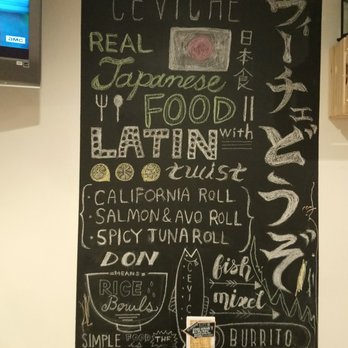 CEVICHE
REAL
日本食
Japanese
FOOD
LATIN with
twist
CALIFORNIA ROLL
SALMON & AVO ROLL
SPICY TUNA ROLL
DON
MEANS
RICE
Bowls
CEVIC
fish
mixet
BURRITO
SIMPLE FOOD IS THE
ィーチェどうぞ
amc